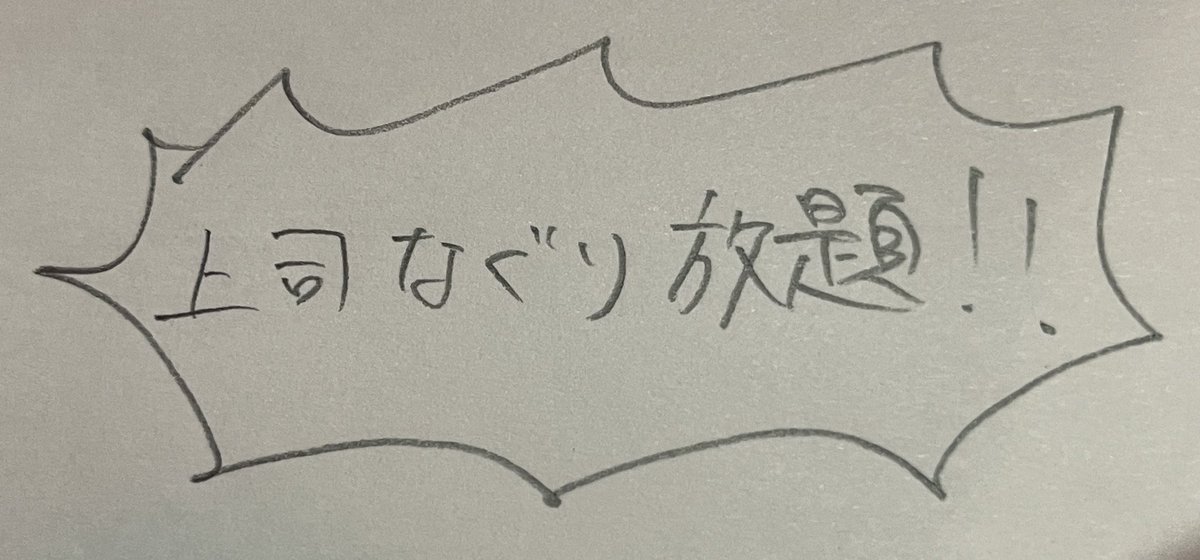 上司なぐり放題!!